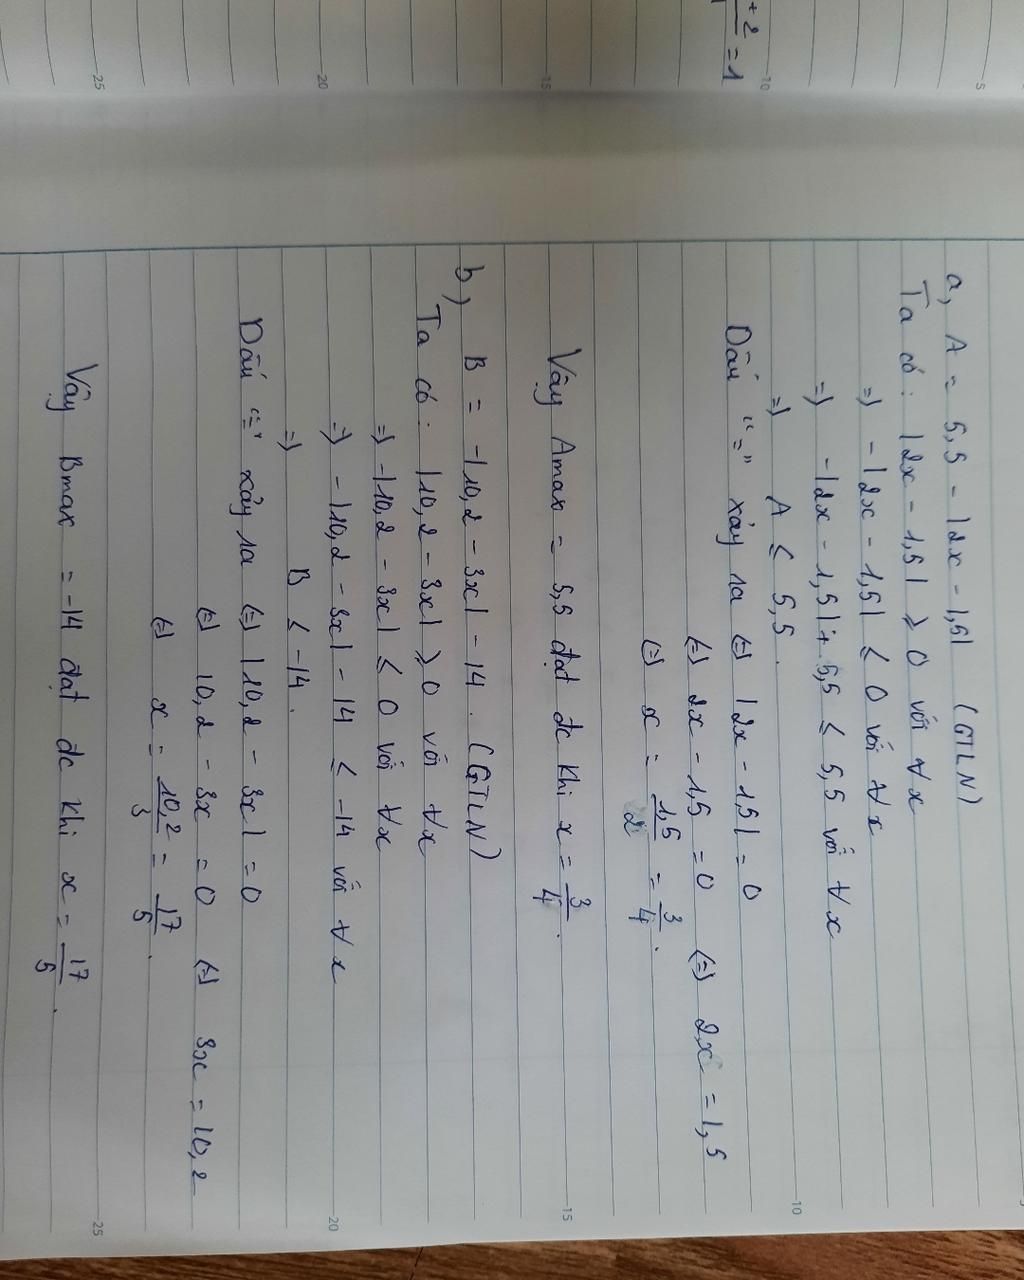 + 2 = 1
25 20 15 10 5
a, A = 5,5 - |2x - 1,5| (GTLN)
Ta có: |2x - 1,5| ⩾ 0 với ∀x
=) - |2x - 1,5| ≤ 0 với ∀x
=) - |2x - 1,5| + 5,5 ≤ 5,5 với ∀x
=) A ≤ 5,5.
Dấu "=" xảy ra (=) |2x - 1,5| = 0
(=) 2x - 1,5 = 0 (=) 2x = 1,5
(=) x = 1,5/2 = 3/4.
Vậy Amax = 5,5 đạt đc khi x = 3/4.
b, B = -|10,2 - 3x| - 14. (GTLN)
Ta có: |10,2 - 3x| ⩾ 0 với ∀x
=) -|10,2 - 3x| ≤ 0 với ∀x
=) - |10,2 - 3x| - 14 ≤ -14 với ∀x
=) B ≤ -14.
Dấu "=" xảy ra (=) |10,2 - 3x| = 0
(=) 10,2 - 3x = 0 (=) 3x = 10,2
(=) x = 10,2/3 = 17/5.
Vậy Bmax = -14 đạt đc khi x = 17/5.
25 20 15 10